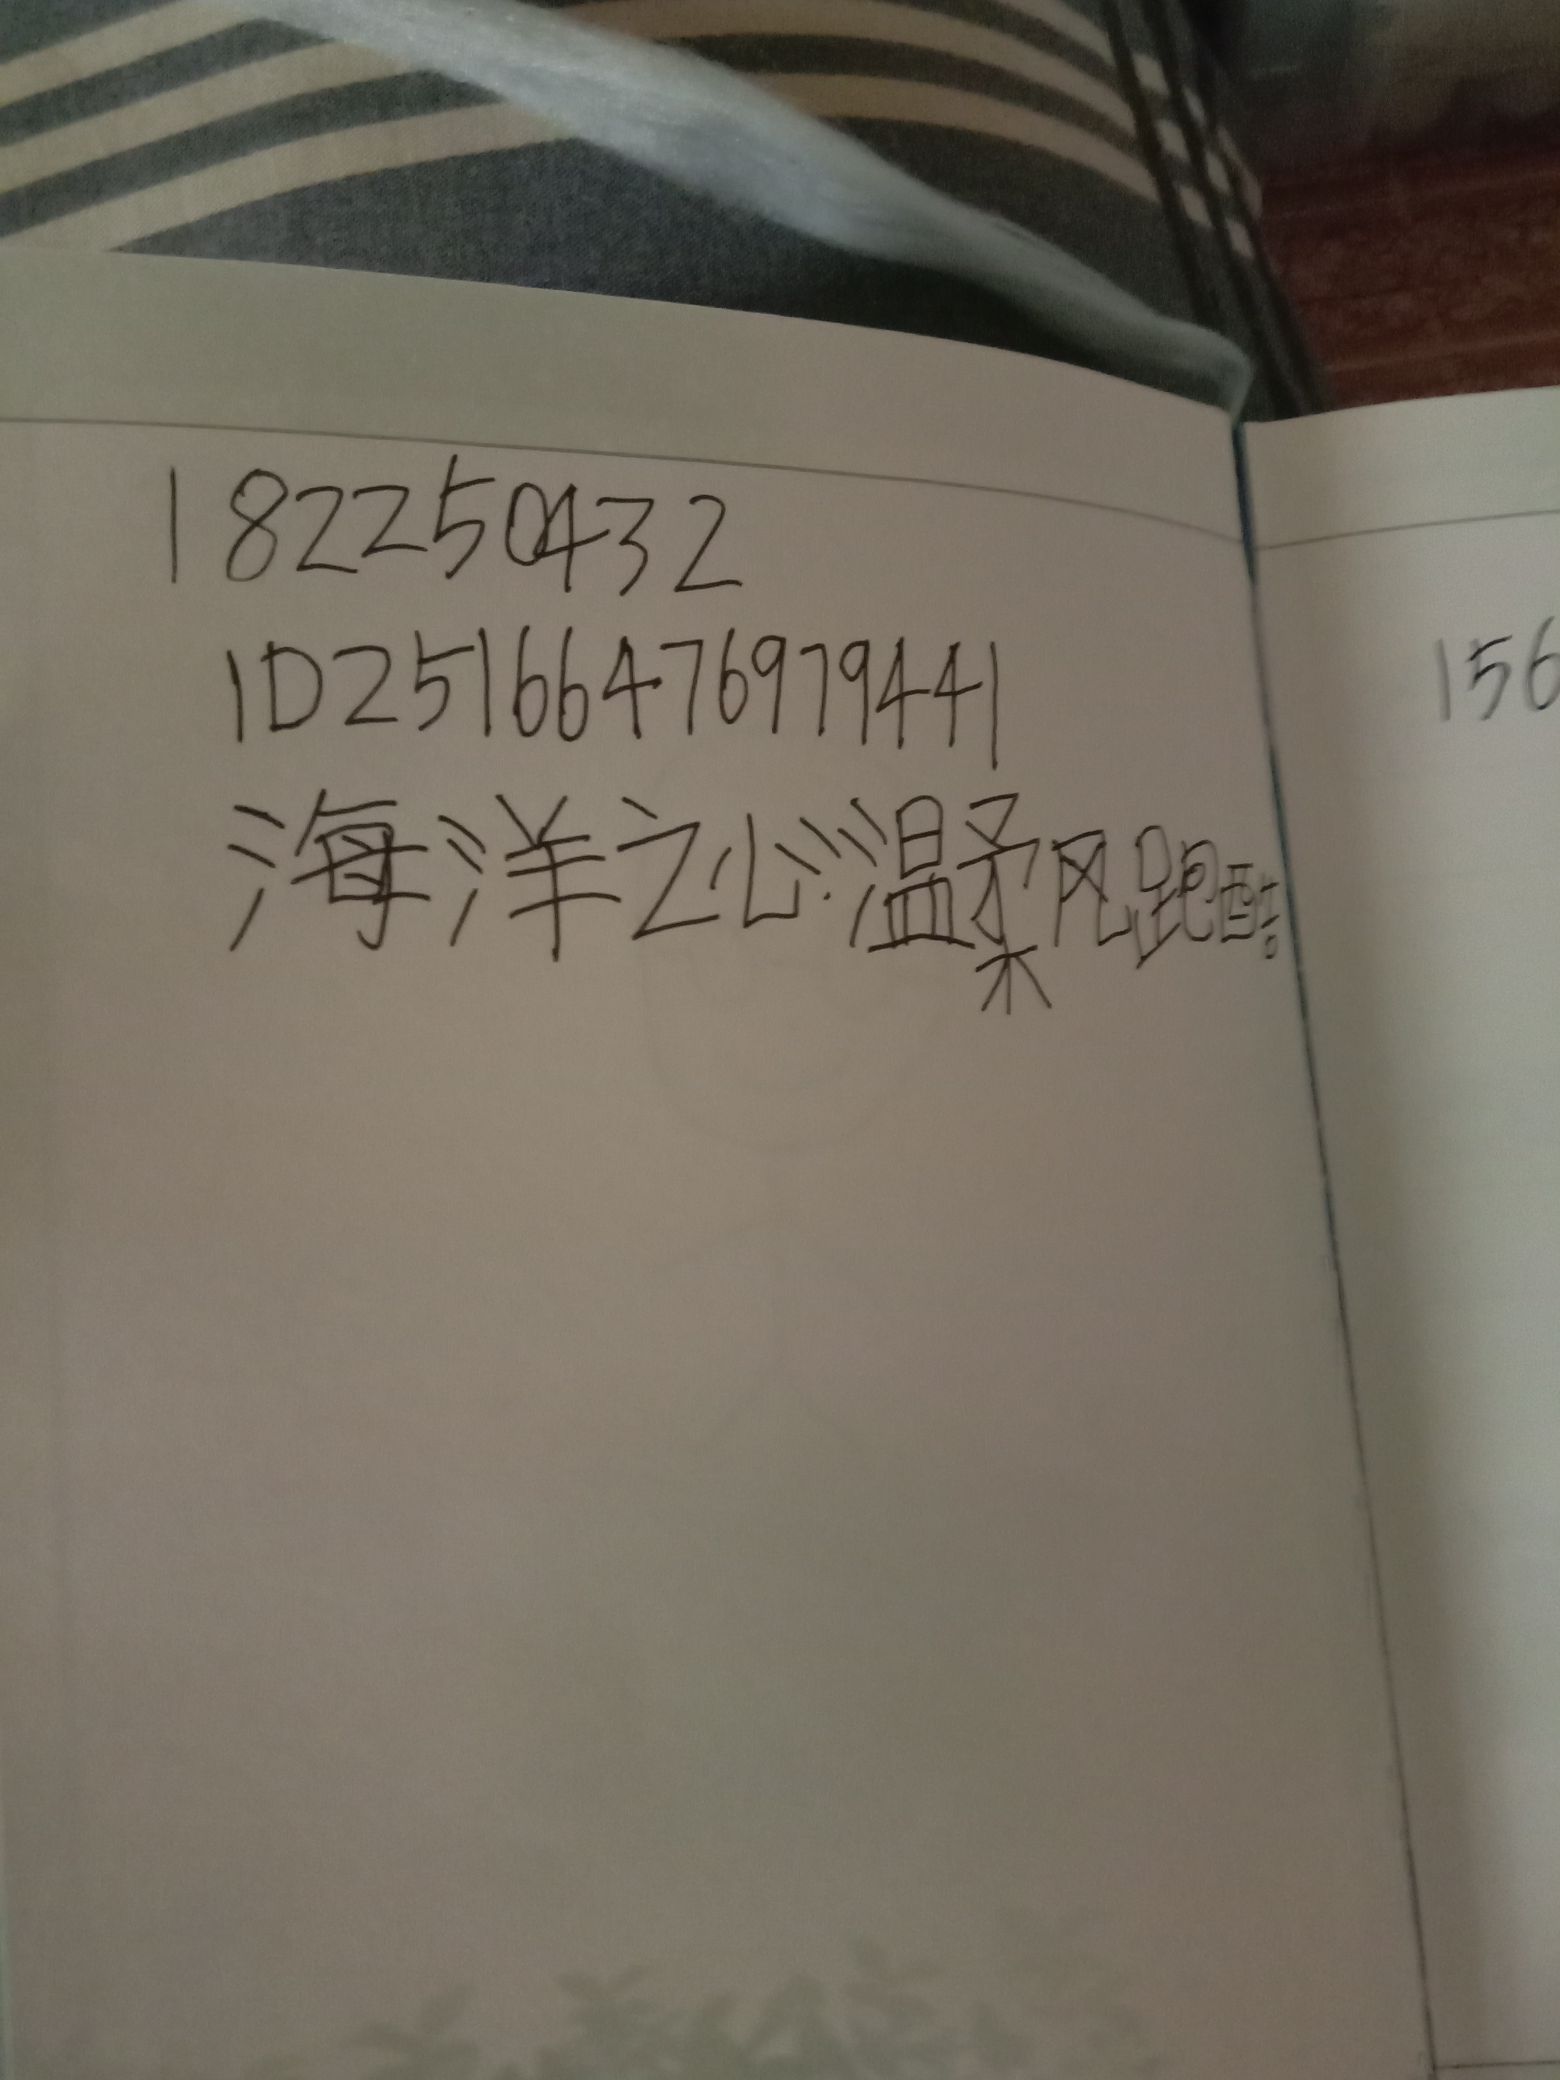 182250432
ID2516647697944​1
海洋之心温柔风跑酷
156